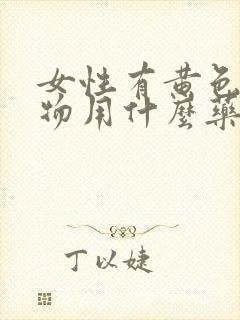 女性有黄色
物用什麼藥
丁以婕